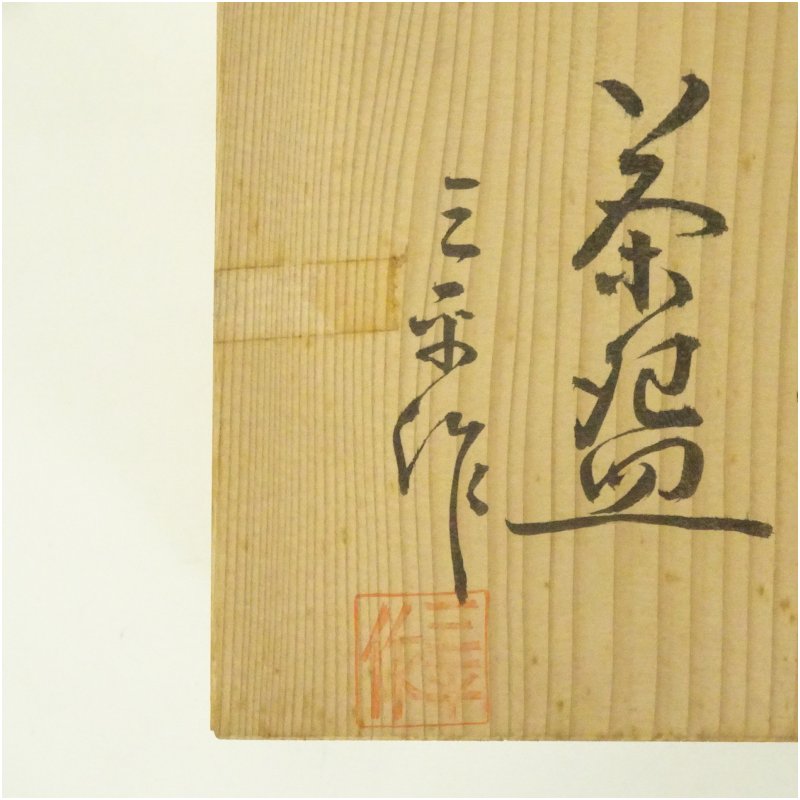 茶盌
三平作
三平作